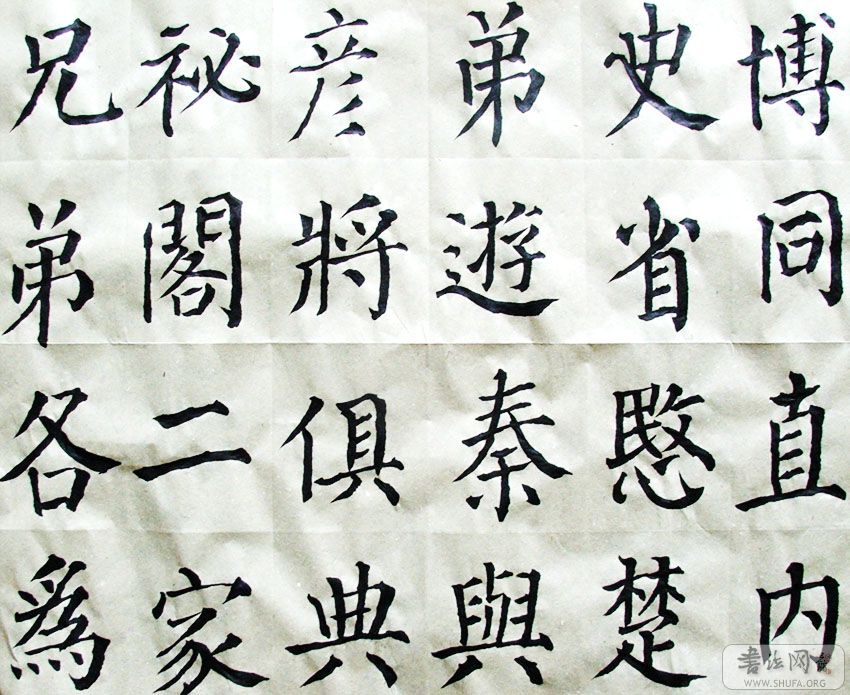 博同直内
史省愍楚
弟遊秦與
彦將俱典
祕閣二家
兄弟各爲
书法网
WWW.SHUFA.ORG